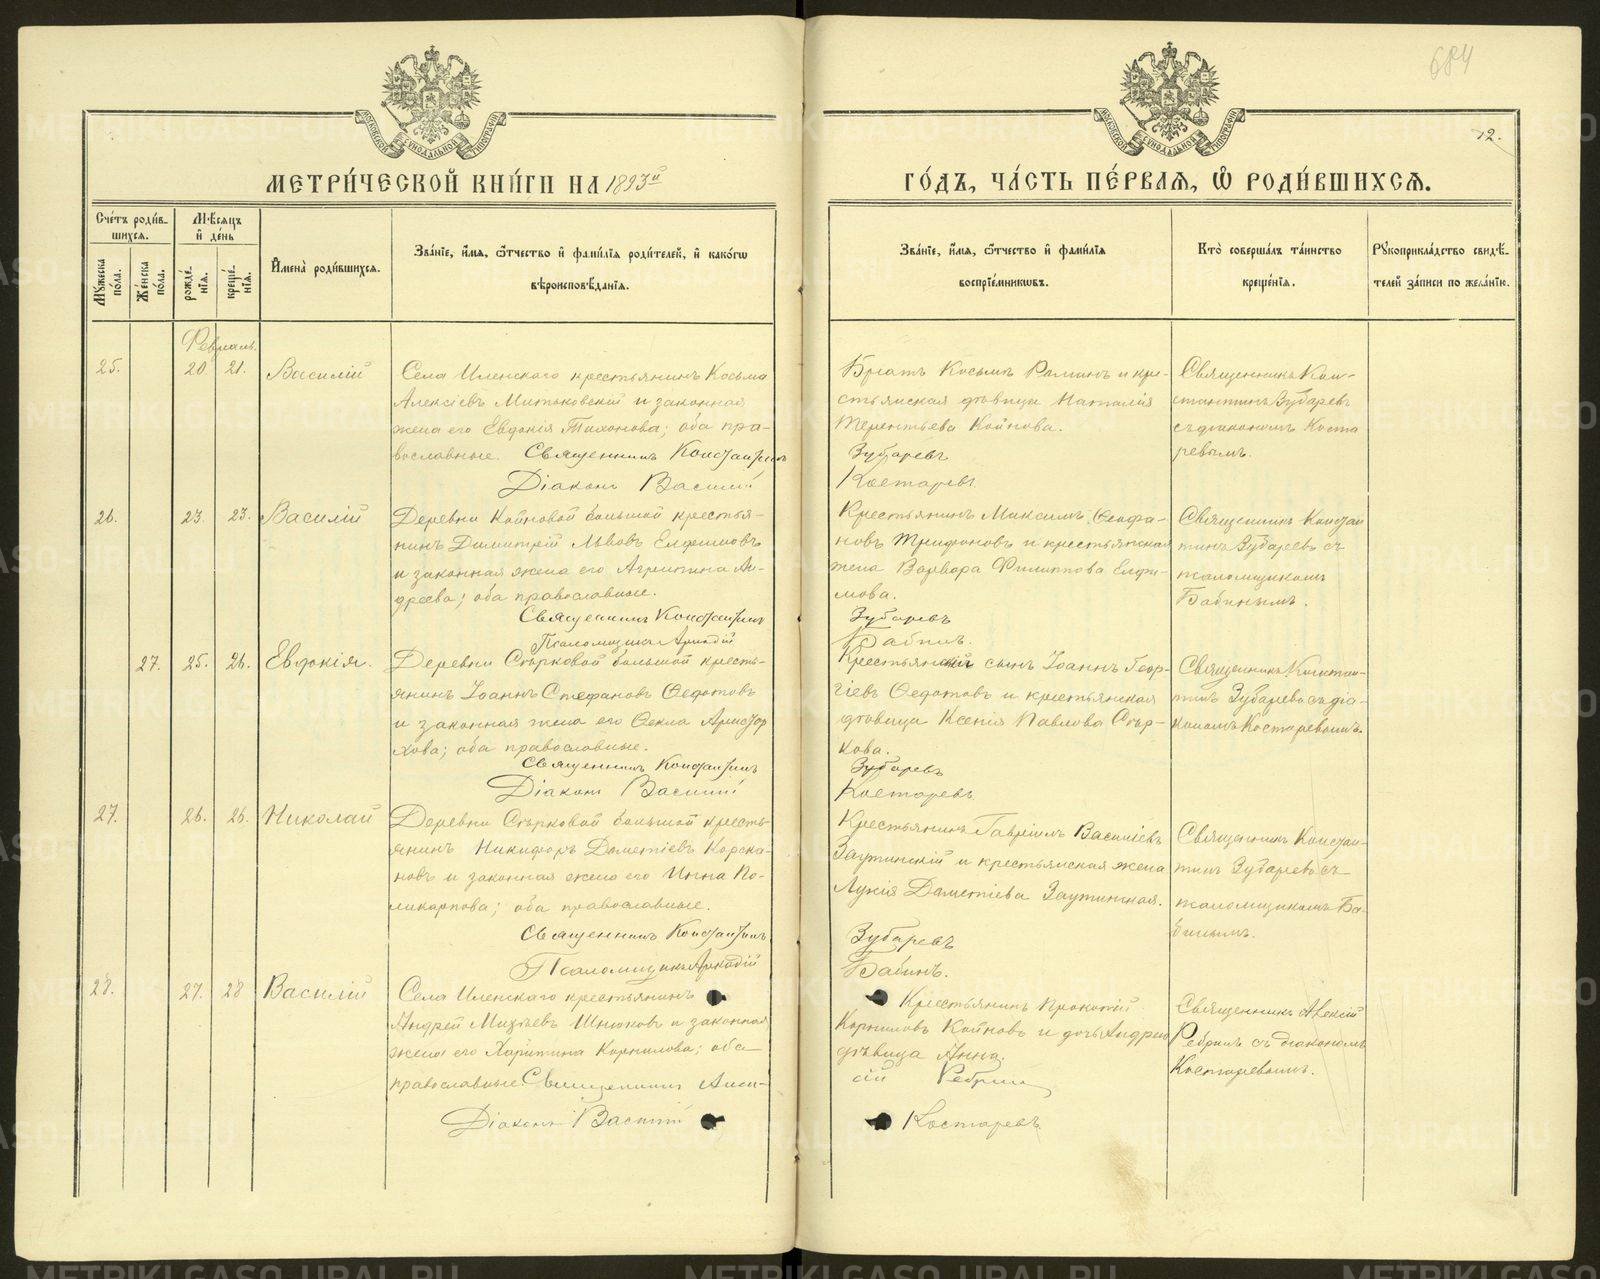 684
12.
МОСКОВСКОЙ СѴНОДАЛЬНОЙ ТИПОГРАФІИ
МОСКОВСКОЙ СѴНОДАЛЬНОЙ ТИПОГРАФІИ
МЕТРИ́ЧЕСКОЙ КНИ́ГИ НА 1893й
ГО́ДЪ, ЧА́СТЬ ПЕ́РВАЯ, Ѡ РОДИ́ВШИХСЯ.
Сче́тъ роди́в-
шихся.
Мꙋжеска по́ла.
Же́нска по́ла.
Мѣ́сяцъ
и҆ де́нь
рожде́-
нія.
креще́-
нія.
И҆мена̀ роди́вшихся.
Зва́ніе, и҆́мя, ѻ҆́тчество и҆ фами́лія роди́телей, и҆ како́гѡ
вѣроисповѣ́данія.
Зва́ніе, и҆́мя, ѻ҆́тчество и҆ фами́лія
воспріе́мникѡвъ.
Кто̀ соверша́лъ та́инство
креще́нія.
Рꙋкоприкла́дство свидѣ́-
телей за́писи по жела́нію.
Февраль.
25. 20 21. Василій
Села Иленскаго крестьянинъ Косьма
Алексіевъ Митьковскій и законная
жена его Евдокія Тихонова; оба пра-
вославные. Священникъ Константинъ
Діаконъ Василій
Братъ Косьмы Романъ и кре-
стьянская дѣвица Наталія
Терентьева Койнова.
Зубаревъ
Костаревъ
Священникъ Кон-
стантинъ Зубаревъ
съ діакономъ Коста
ревымъ.
26. 23. 23. Василій
Деревни Койновой большой крестья-
нинъ Димитрій Львовъ Елфимовъ
и законная жена его Агрипина Ан-
дреева; оба православные.
Священникъ Константинъ
Псаломщикъ Аркадій
Крестьянинъ Максимъ Ѳеофа-
новъ Трифоновъ и крестьянская
жена Варвара Филиппова Елфи-
мова.
Зубаревъ
Бабинъ.
Священникъ Констан
тинъ Зубаревъ съ
псаломщикомъ
Бабинымъ.
27. 25. 26. Евдокія.
Деревни Сѣрковой большой кресть-
янинъ Іоаннъ Стефановъ Ѳедотовъ
и законная жена его Ѳекла Аристар
хова; оба православные.
Священникъ Константинъ
Діаконъ Василій
Крестьянскій сынъ Іоаннъ Геор-
гіевъ Ѳедотовъ и крестьянская
дѣвица Ксенія Павлова Сѣр-
кова.
Зубаревъ
Костаревъ
Священникъ Констан-
тинъ Зубаревъ съ діа-
кономъ Костаревымъ.
27. 26. 26. Николай
Деревни Сѣрковой большой кресть-
янинъ Никифоръ Дометіевъ Корска-
новъ и законная жена его Инна По-
ликарпова; оба православные.
Священникъ Константинъ
Псаломщикъ Аркадій
Крестьянинъ Гавріилъ Василіевъ
Заутинскій и крестьянская жена
Лукія Дометіева Заутинская.
Зубаревъ
Бабинъ.
Священникъ Констан-
тинъ Зубаревъ съ
псаломщикомъ Ба-
бинымъ.
28. 27. 28 Василій
Села Иленскаго крестьянинъ
Андрей Михѣевъ Шнюковъ и законная
жена его Харитина Корнилова; оба
православные. Священникъ Алек-
Діаконъ Василій
Крестьянинъ Прокопій
Корниловъ Койновъ и дочь Андрея
дѣвица Анна.
сій Ребринъ
Костаревъ
Священникъ Алексій
Ребринъ съ діакономъ
Костаревымъ.
METRIKI.GASO-URAL.RU